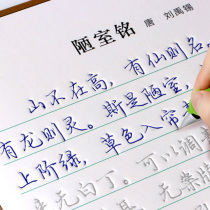 陋室铭
唐 刘禹锡
山不在高，有仙则名。
有龙则灵。斯是陋室，
上阶绿，草色入帘青
无白丁。可以调
无案牍